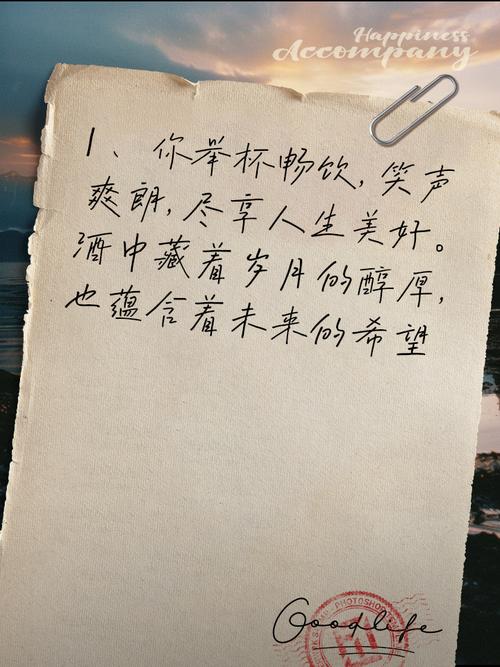 Happiness
Accompany
1、你举杯畅饮,笑声
爽朗,尽享人生美好。
酒中藏着岁月的醇厚,
也蕴含着未来的希望
PHOTOSHOP
Goodlife